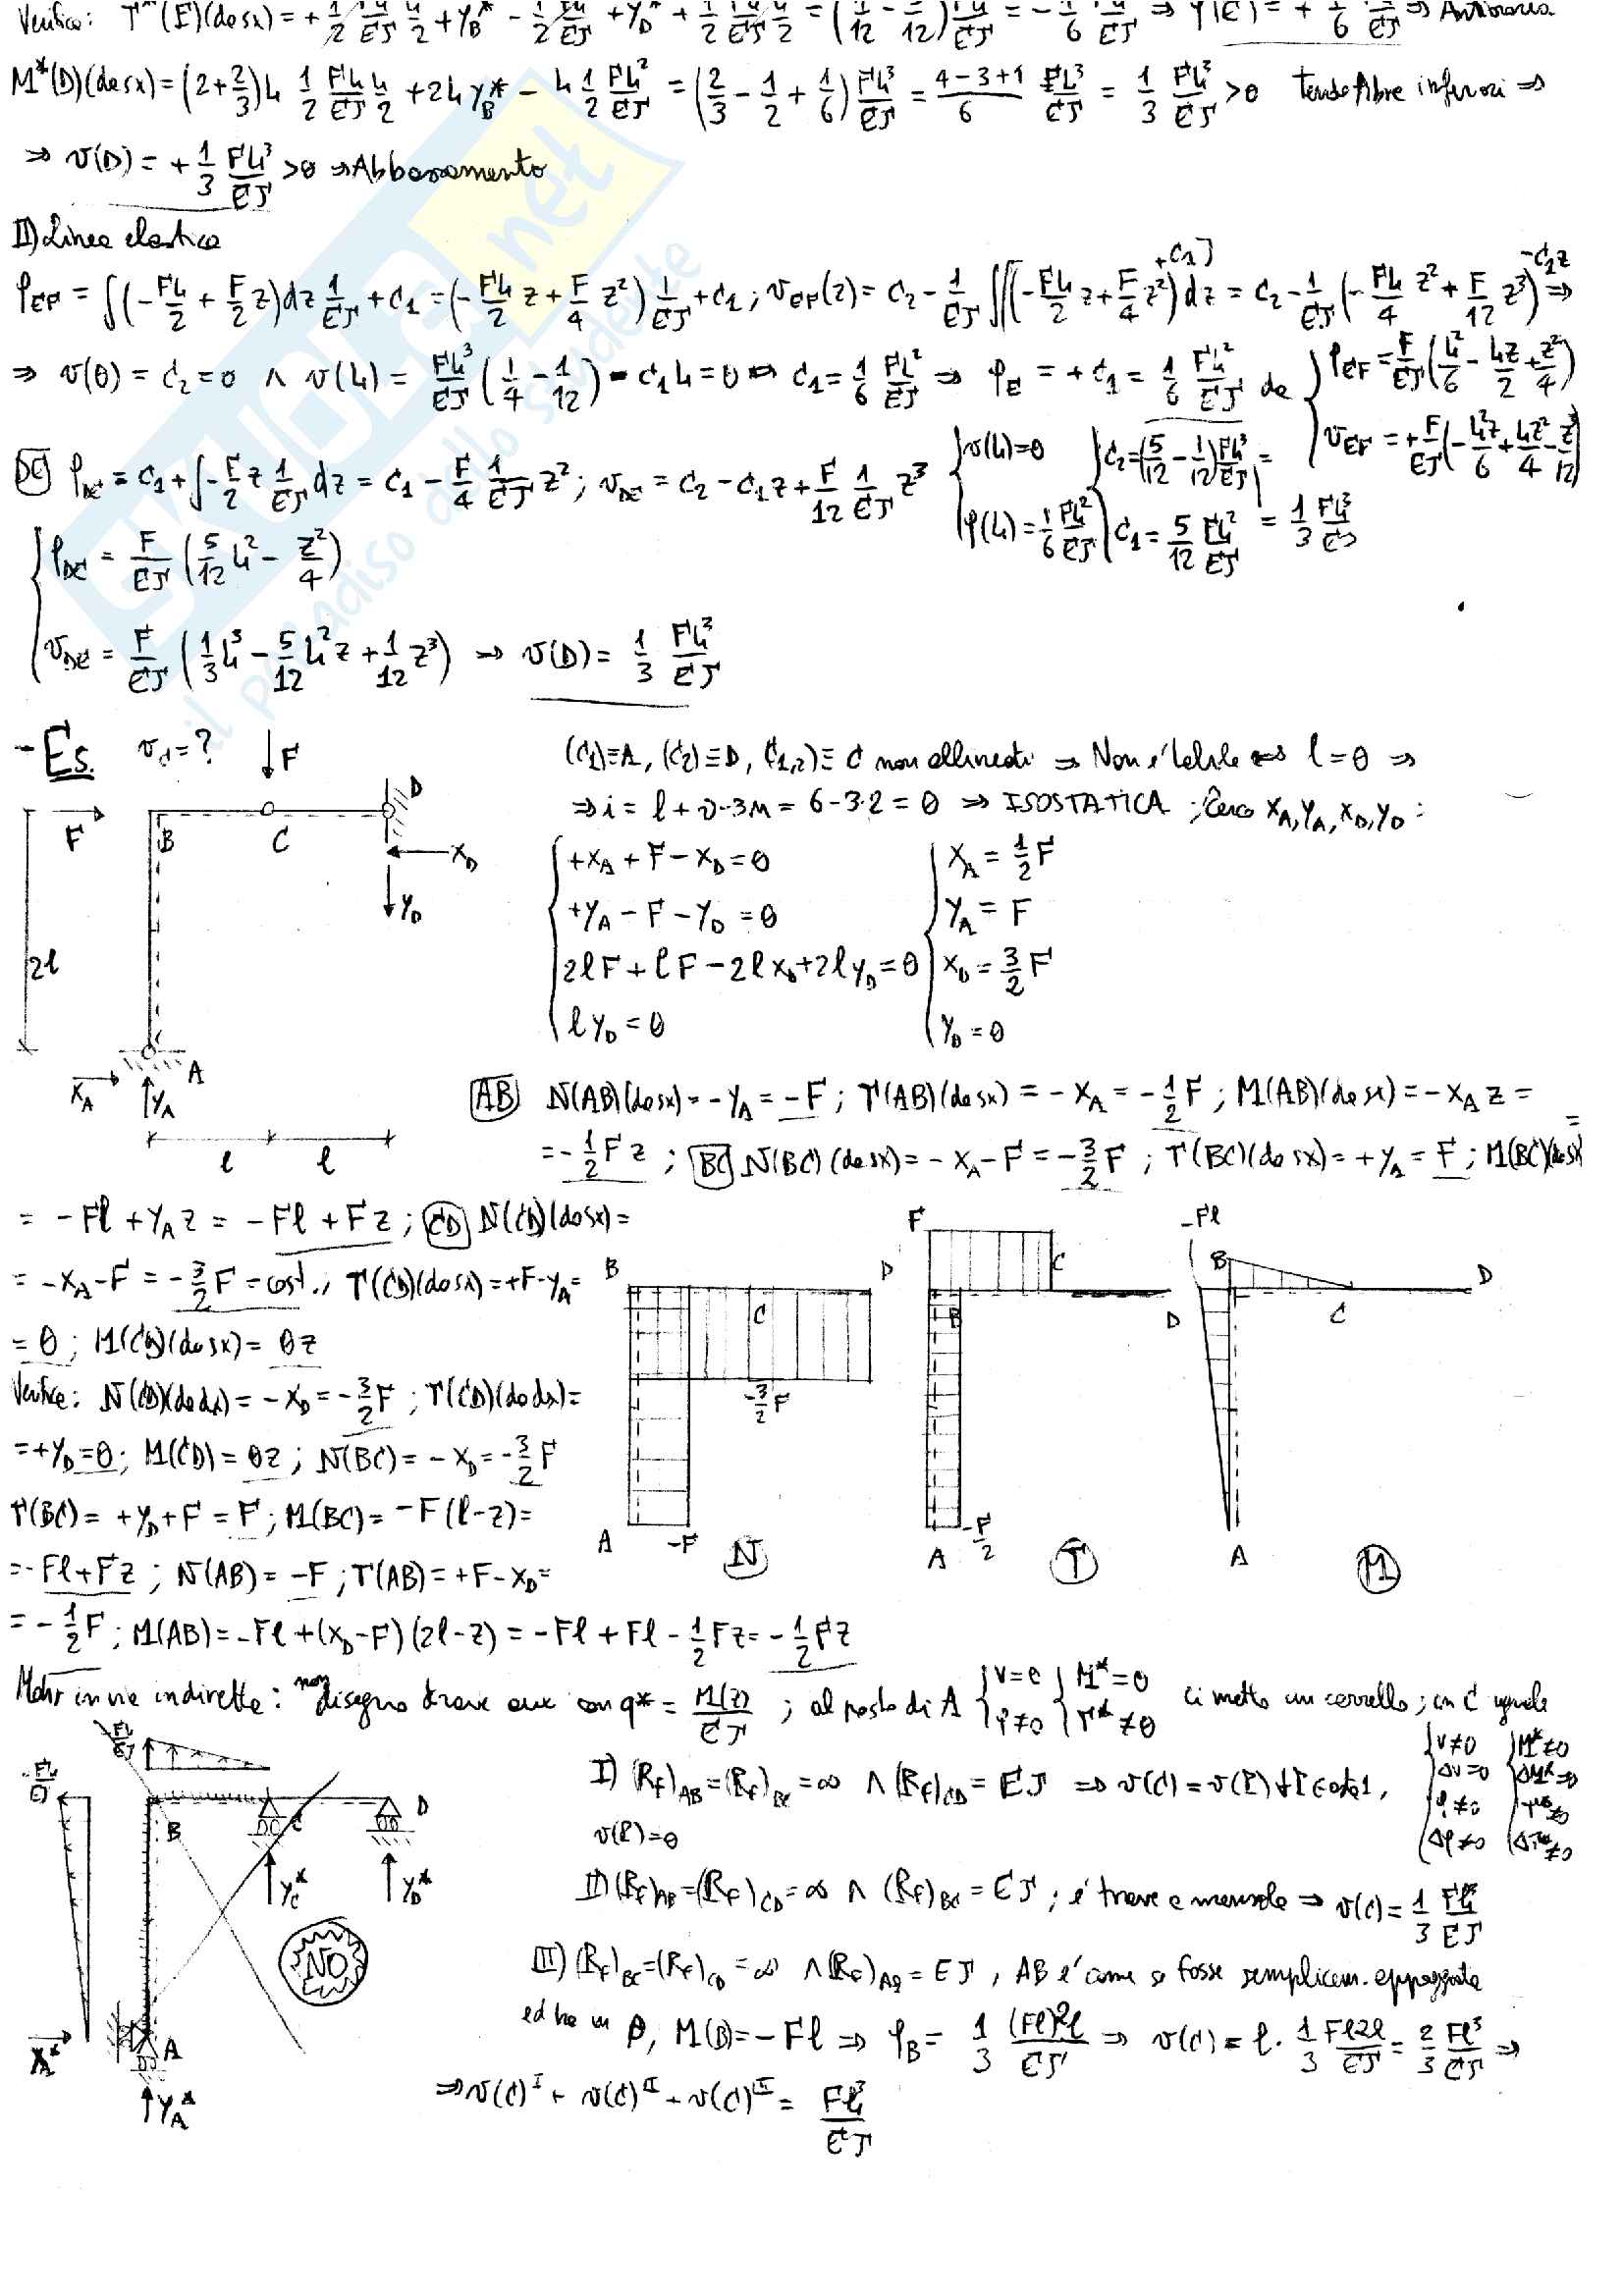 Verifica: T*(E)(da sx) = + 1/2 FL/EJ L/2 + Y_B* - 1/2 FL/EJ + Y_D* + 1/2 FL/EJ L/2 = (1/12 - 3/12) FL²/EJ = - 1/6 ⇒ φ(E) = + 1/6 FL²/EJ ⇒ Antioraria
M*(D)(da sx) = (2 + 2/3) L 1/2 FL/EJ L/2 + 2L Y_B* - L 1/2 FL²/EJ = (2/3 - 1/2 + 1/6) FL³/EJ = (4-3+1)/6 FL³/EJ = 1/3 FL³/EJ > 0 tende fibre inferiori ⇒
⇒ v(D) = + 1/3 FL³/EJ > 0 ⇒ Abbassamento
II) Linea elastica
φ_EF = ∫(- FL/2 + F/2 z) dz 1/EJ + C1 = (- FL/2 z + F/4 z²) 1/EJ + C1 ; v_EF(z) = C2 - 1/EJ ∫[(- FL/2 z + F/4 z²) + C1] dz = C2 - 1/EJ (- FL/4 z² + F/12 z³) - C1z ⇒
⇒ v(0) = C2 = 0 ∧ v(L) = FL³/EJ (1/4 - 1/12) - C1L = 0 ⇒ C1 = 1/6 FL²/EJ ⇒ φ_E = + C1 = 1/6 FL²/EJ da { φ_EF = F/EJ (L²/6 - Lz/2 + z²/4)
v_EF = + F/EJ (- L²z/6 + Lz²/4 - z³/12)
DE φ_DE = C1 + ∫ - F/2 z 1/EJ dz = C1 - F/4 1/EJ z² ; v_DE = C2 - C1z + F/12 1/EJ z³ { v(L) = 0 { C2 = (5/12 - 1/12) FL³/EJ =
φ(L) = 1/6 FL²/EJ C1 = 5/12 FL²/EJ = 1/3 FL³/EJ
φ_DE = F/EJ (5/12 L² - z²/4)
v_DE = F/EJ (1/3 L³ - 5/12 L² z + 1/12 z³) ⇒ v(D) = 1/3 FL³/EJ
- Es. v_d = ?
F
F B C D
X_D
Y_D
2l
A
X_A Y_A
l l
(C1) ≡ A, (C2) ≡ D, C1,2) ≡ C non allineati ⇒ Non è labile ⇔ l = 0 ⇒
⇒ i = l + v - 3n = 6 - 3·2 = 0 ⇒ ISOSTATICA ; Cerco X_A, Y_A, X_D, Y_D :
+X_A + F - X_D = 0 X_A = 1/2 F
+Y_A - F - Y_D = 0 Y_A = F
2lF + lF - 2lX_D + 2lY_D = 0 X_D = 3/2 F
lY_D = 0 Y_D = 0
AB N(AB)(da sx) = - Y_A = - F ; T(AB)(da sx) = - X_A = - 1/2 F ; M(AB)(da sx) = - X_A z =
= - 1/2 F z ; BC N(BC)(da sx) = - X_A - F = - 3/2 F ; T(BC)(da sx) = + Y_A = F ; M(BC)(da sx)
= - Fl + Y_A z = - Fl + F z ; CD N(CD)(da sx) =
= - X_A - F = - 3/2 F = cost. ; T(CD)(da sx) = + F - Y_A =
= 0 ; M(CD)(da sx) = 0z
Verifica: N(CD)(da dx) = - X_D = - 3/2 F ; T(CD)(da dx) =
= + Y_D = 0 ; M(CD) = 0z ; N(BC) = - X_D = - 3/2 F
T(BC) = + Y_D + F = F ; M(BC) = - F(l - z) =
= - Fl + Fz ; N(AB) = - F ; T(AB) = + F - X_D =
= - 1/2 F ; M(AB) = - Fl + (X_D - F)(2l - z) = - Fl + Fl - 1/2 Fz = - 1/2 Fz
B D C - 3/2 F A - F N
F C B D A - F/2 T
- Fl B C D A M
Mohr in via indiretta: non disegno trave aux con q* = M(z)/EJ ; al posto di A { v = 0 φ ≠ 0 { M* = 0 T* ≠ 0 ci metto un carrello ; in C uguale
{ v ≠ 0 Δv = 0 φ ≠ 0 Δφ ≠ 0 { M* ≠ 0 ΔM* = 0 T* ≠ 0 ΔT* ≠ 0
- Fl/EJ - Fl/EJ B C D Y_C* Y_D* NO A X_A* Y_A*
I) (R_f)_AB = (R_f)_BC = ∞ ∧ (R_f)_CD = EJ ⇒
v(C) = 0
II) (R_f)_AB = (R_f)_CD = ∞ ∧ (R_f)_BC = EJ ; è trave a mensola ⇒ v(C) = 1/3 Fl³/EJ
III) (R_f)_BC = (R_f)_CD = ∞ ∧ (R_f)_AB = EJ , AB è come se fosse semplicem. appoggiata
ed ha in B, M(B) = - Fl ⇒ φ_B = 1/3 (Fl)2l/EJ ⇒ v(C) = l · 1/3 Fl2l/EJ = 2/3 Fl³/EJ ⇒
⇒ v(C)^I + v(C)^II + v(C)^III = Fl³/EJ
SKUOLA.net
il paradiso dello studente